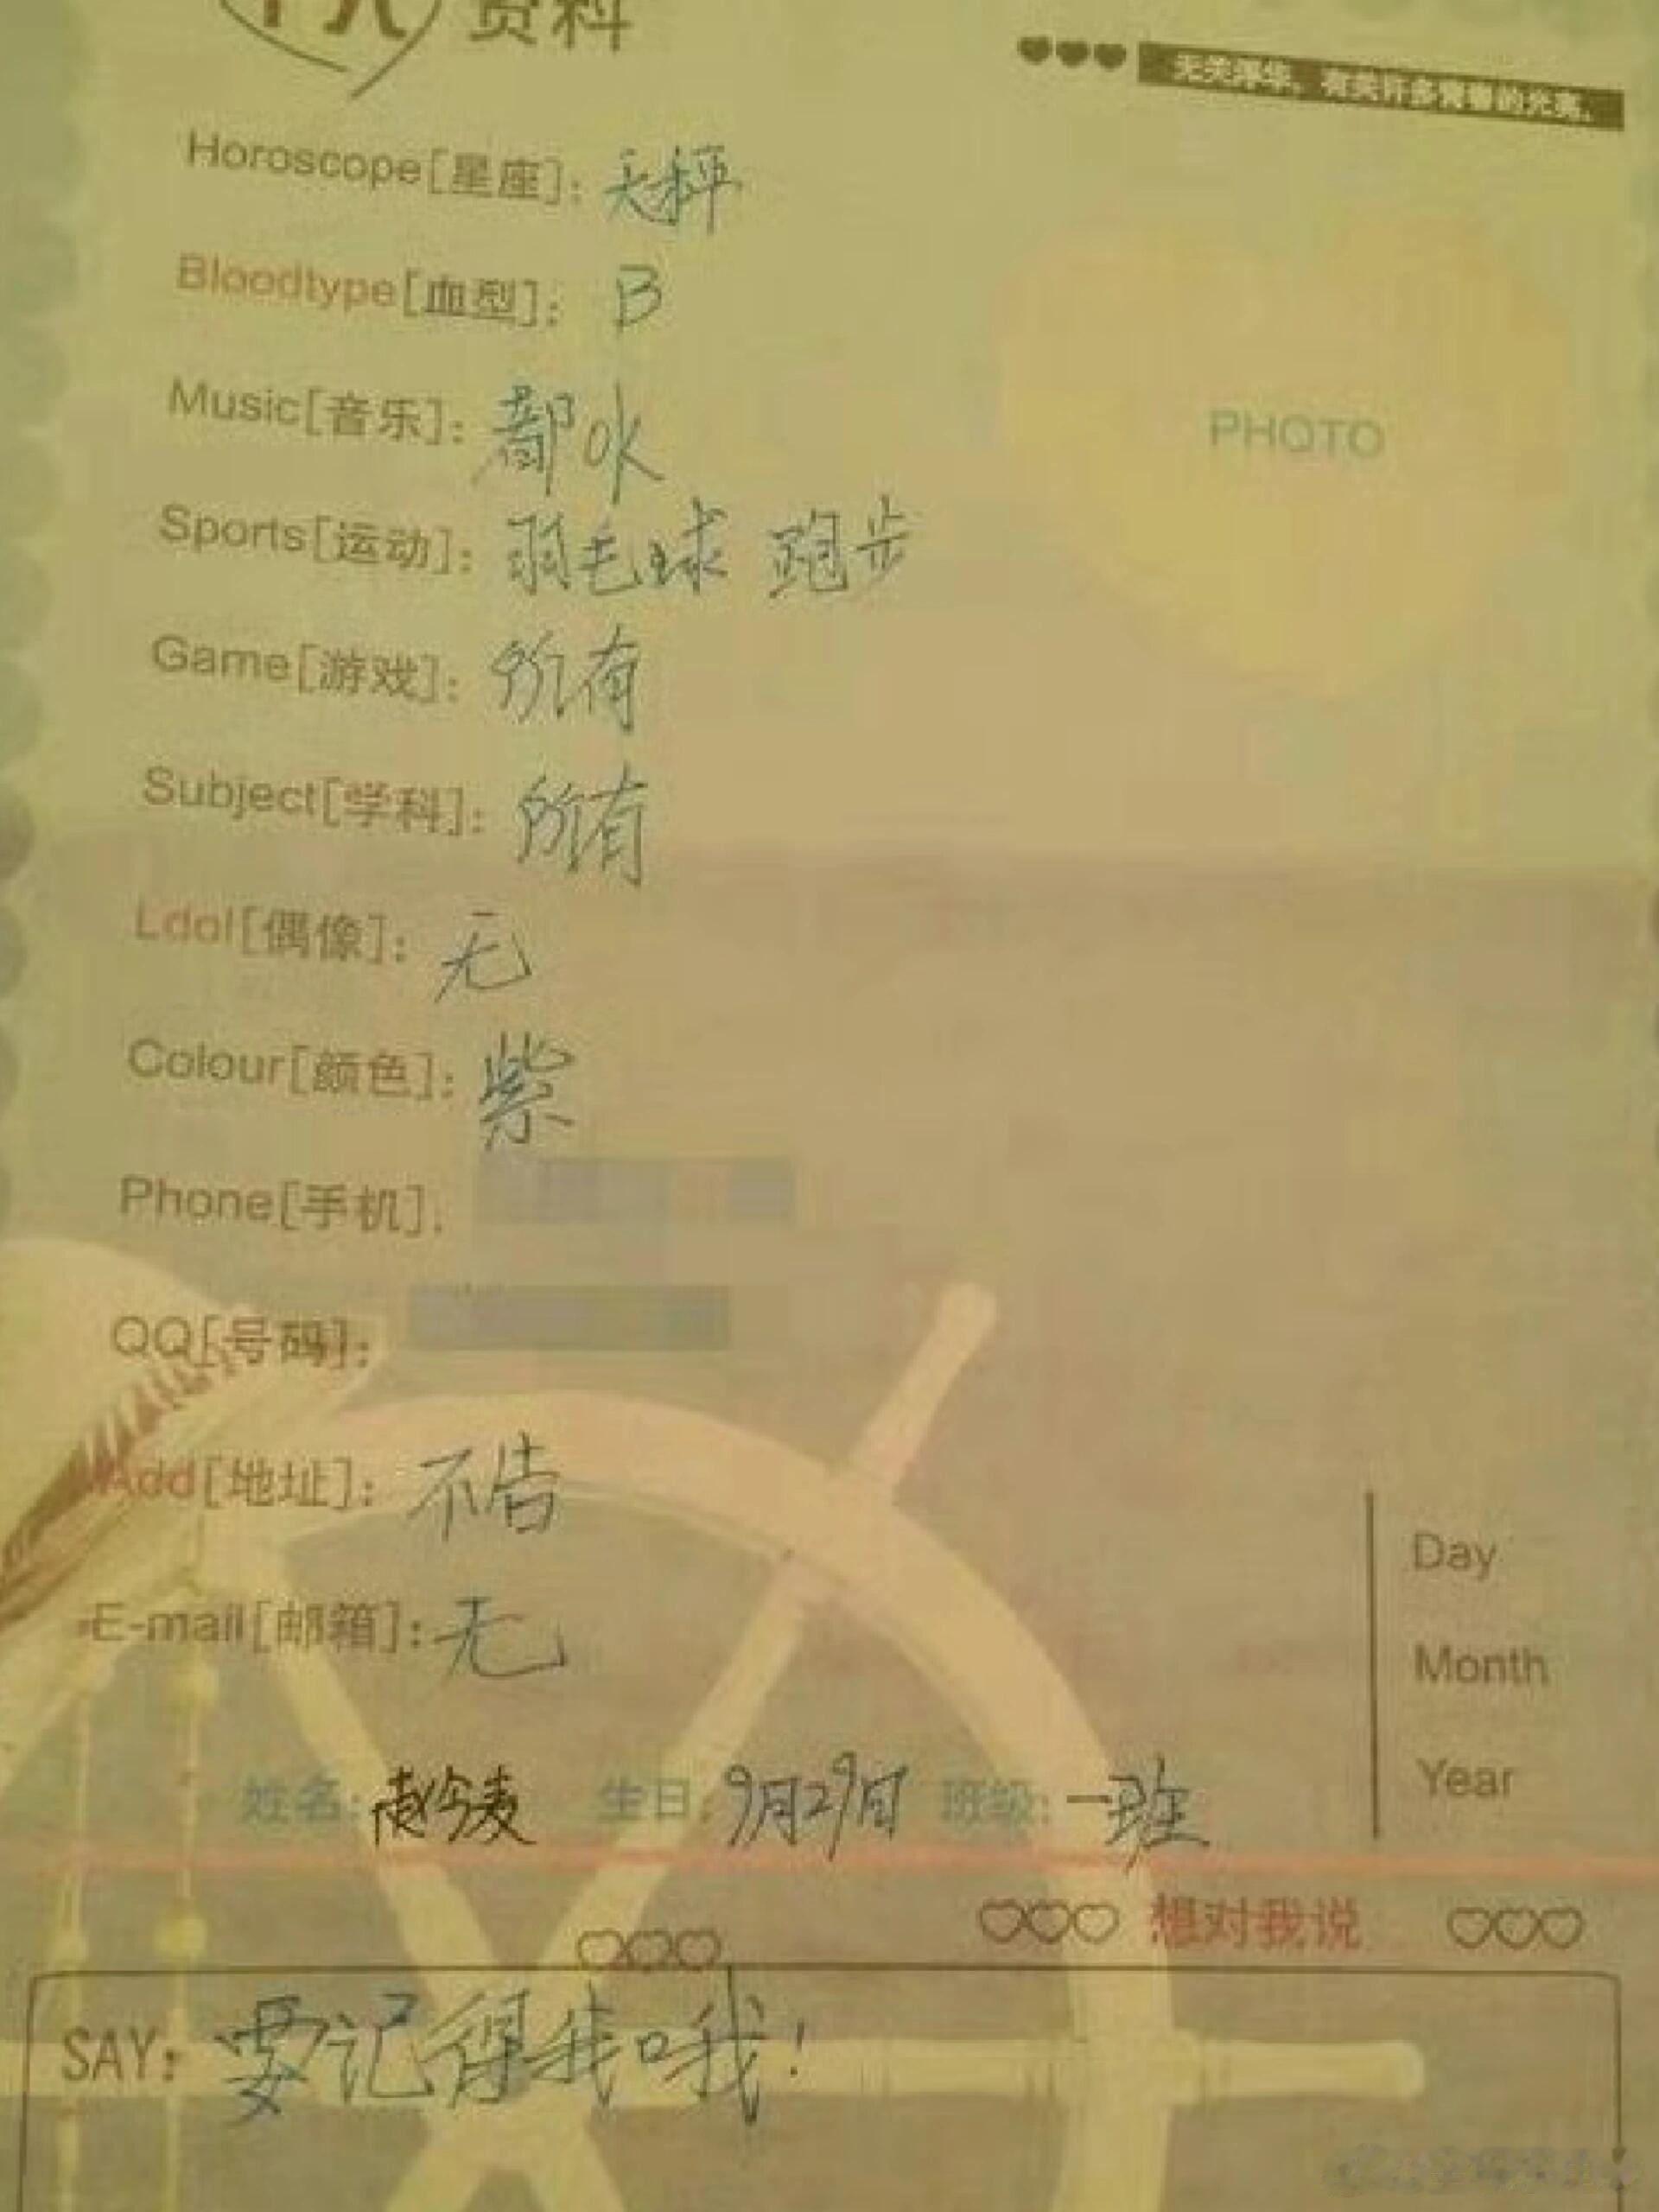 个人资料
无关浮华，有关许多青春的光亮。
Horoscope[星座]：天秤
Bloodtype[血型]：B
PHOTO
Music[音乐]：都ok
Sports[运动]：羽毛球 跑步
Game[游戏]：所有
Subject[学科]：所有
Ldol[偶像]：无
Colour[颜色]：紫
Phone[手机]：
QQ[号码]：
Add[地址]：不告
E-mail[邮箱]：无
Day
Month
Year
姓名：赵今麦 生日：9月29日 班级：一班
想对我说
SAY：要记得我哦！